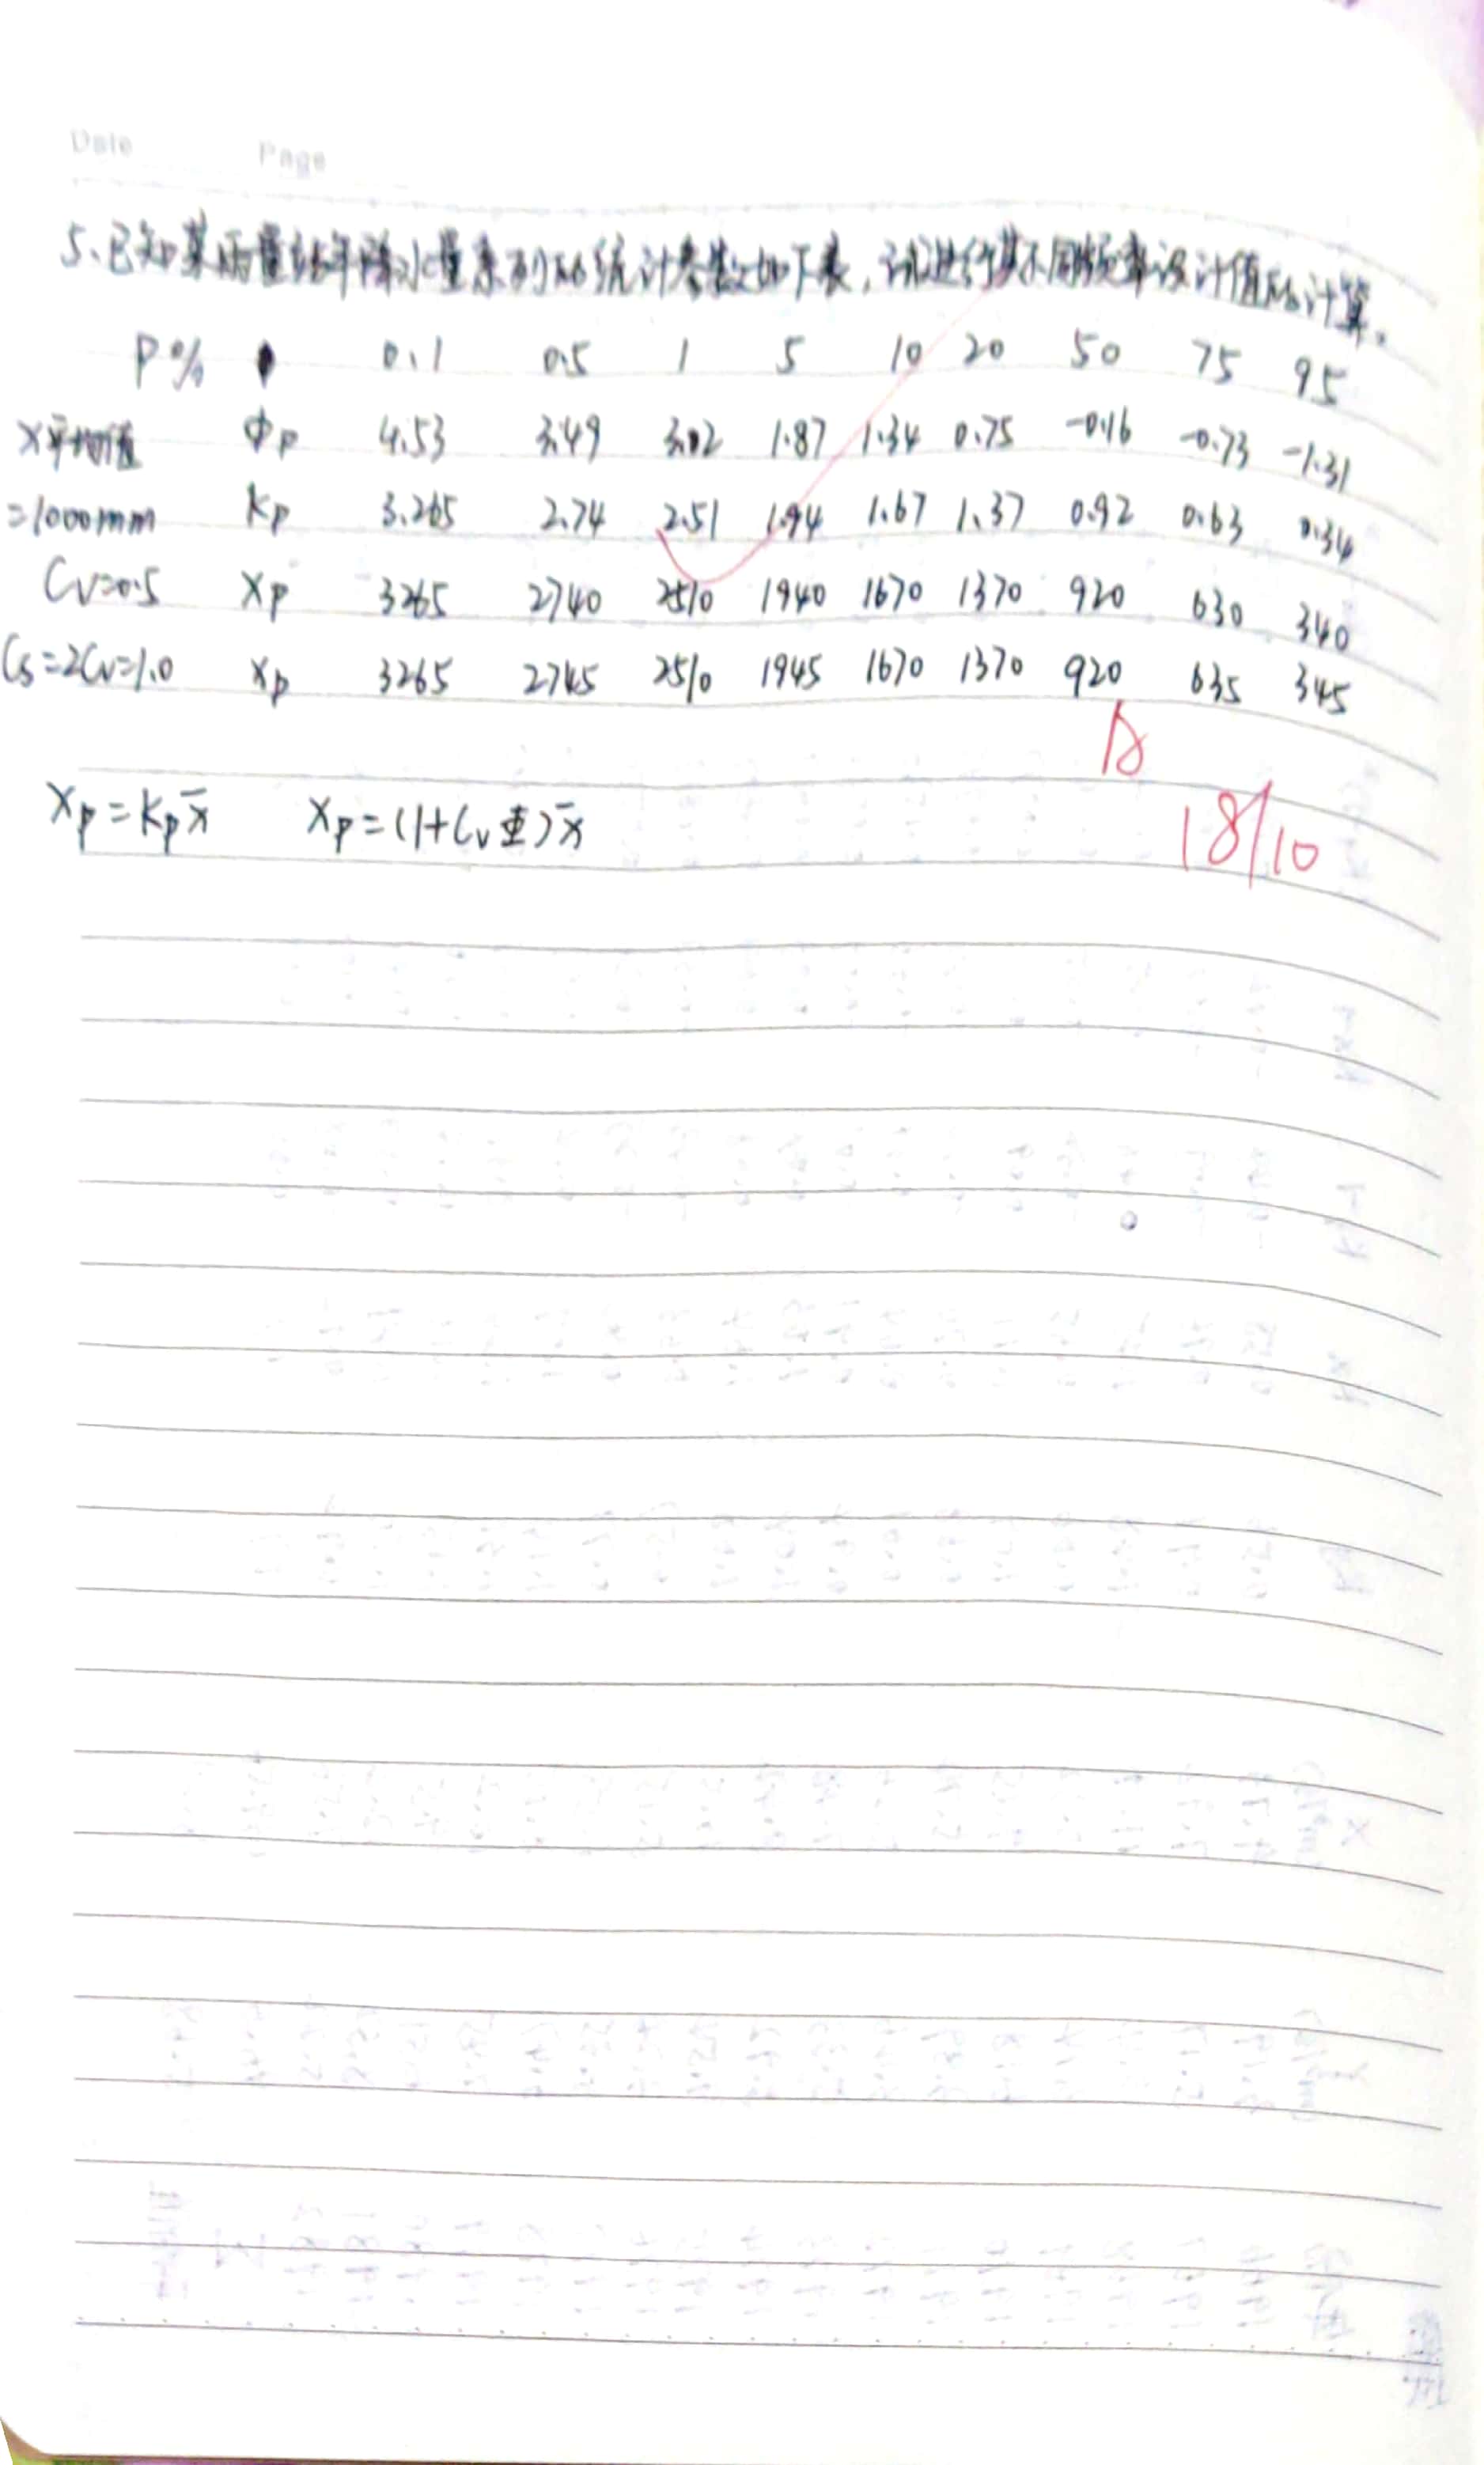 Date Page
5、已知某雨量站年降水量系列的统计参数如下表，试进行其不同频率设计值的计算。
P% 0.1 0.5 1 5 10 20 50 75 95
X平均值 Φp 4.53 3.49 3.02 1.87 1.34 0.75 -0.16 -0.73 -1.31
=1000mm Kp 3.265 2.74 2.51 1.94 1.67 1.37 0.92 0.63 0.34
Cv=0.5 Xp 3265 2740 2510 1940 1670 1370 920 630 340
Cs=2Cv=1.0 Xp 3265 2745 2510 1945 1670 1370 920 635 345
Xp=Kpx̄ Xp=(1+CvΦ)x̄
18/10